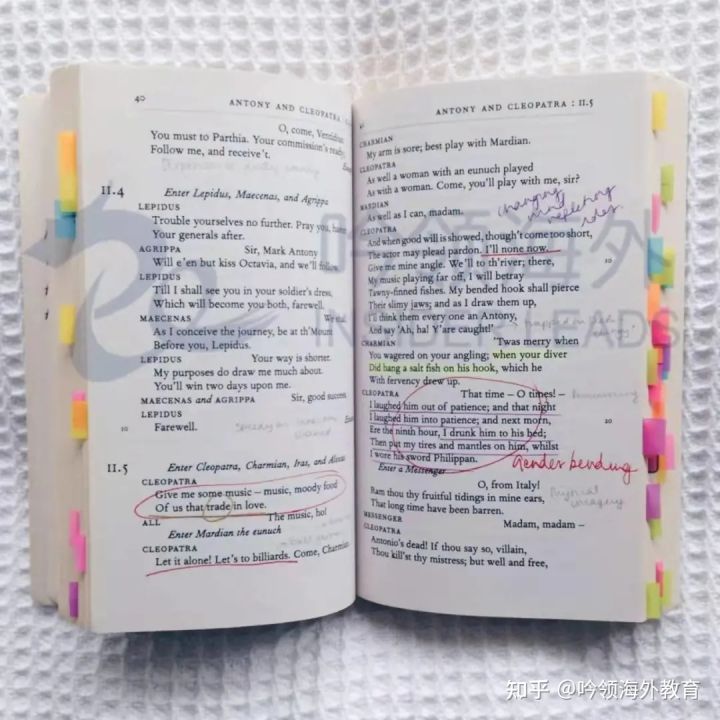 40
ANTONY AND CLEOPATRA :
O, come, Ventidius
You must to Parthia. Your commission's ready;
Follow me, and receive't.
II.4
Enter Lepidus, Maecenas, and Agrippa
LEPIDUS
Trouble yourselves no further. Pray you,
Your generals after.
AGRIPPA Sir, Mark Antony
Will e'en but kiss Octavia, and we'll follow.
LEPIDUS
Till I shall see you in your soldier's dress,
Which will become you both, farewell.
MAECENAS
As I conceive the journey, be at th'Mount
Before you, Lepidus.
LEPIDUS Your way is shorter.
My purposes do draw me much about.
You'll win two days upon me.
MAECENAS and AGRIPPA Sir, good success.
LEPIDUS
10 Farewell.
II.5
Enter Cleopatra, Charmian, Iras, and Alexas
CLEOPATRA
Give me some music – music, moody food
Of us that trade in love.
ALL The music, ho!
Enter Mardian the eunuch
CLEOPATRA
Let it alone! Let's to billiards. Come, Charmian
ANTONY AND CLEOPATRA : II.5
CHARMIAN
My arm is sore; best play with Mardian.
CLEOPATRA
As well a woman with an eunuch played
As with a woman. Come, you'll play with me, sir?
MARDIAN
As well as I can, madam.
changing
CLEOPATRA
And when good will is showed, though't come too short,
The actor may plead pardon. I'll none now.
Give me mine angle. We'll to th'river; there, 10
My music playing far off, I will betray
Tawny-finned fishes. My bended hook shall pierce
Their slimy jaws; and as I draw them up,
I'll think them every one an Antony,
And say 'Ah, ha! Y'are caught!'
CHARMIAN 'Twas merry when
You wagered on your angling; when your diver
Did hang a salt fish on his hook, which he
With fervency drew up.
CLEOPATRA That time – O times! –
I laughed him out of patience; and that night
I laughed him into patience; and next morn,
Ere the ninth hour, I drunk him to his bed;
Then put my tires and mantles on him, whilst
I wore his sword Philippan.
Gender bending
Enter a Messenger
O, from Italy!
Ram thou thy fruitful tidings in mine ears,
That long time have been barren.
MESSENGER Madam, madam –
CLEOPATRA
Antonio's dead! If thou say so, villain,
Thou kill'st thy mistress; but well and free,
吟领海外
INSIDER LEADS
知乎 @吟领海外教育